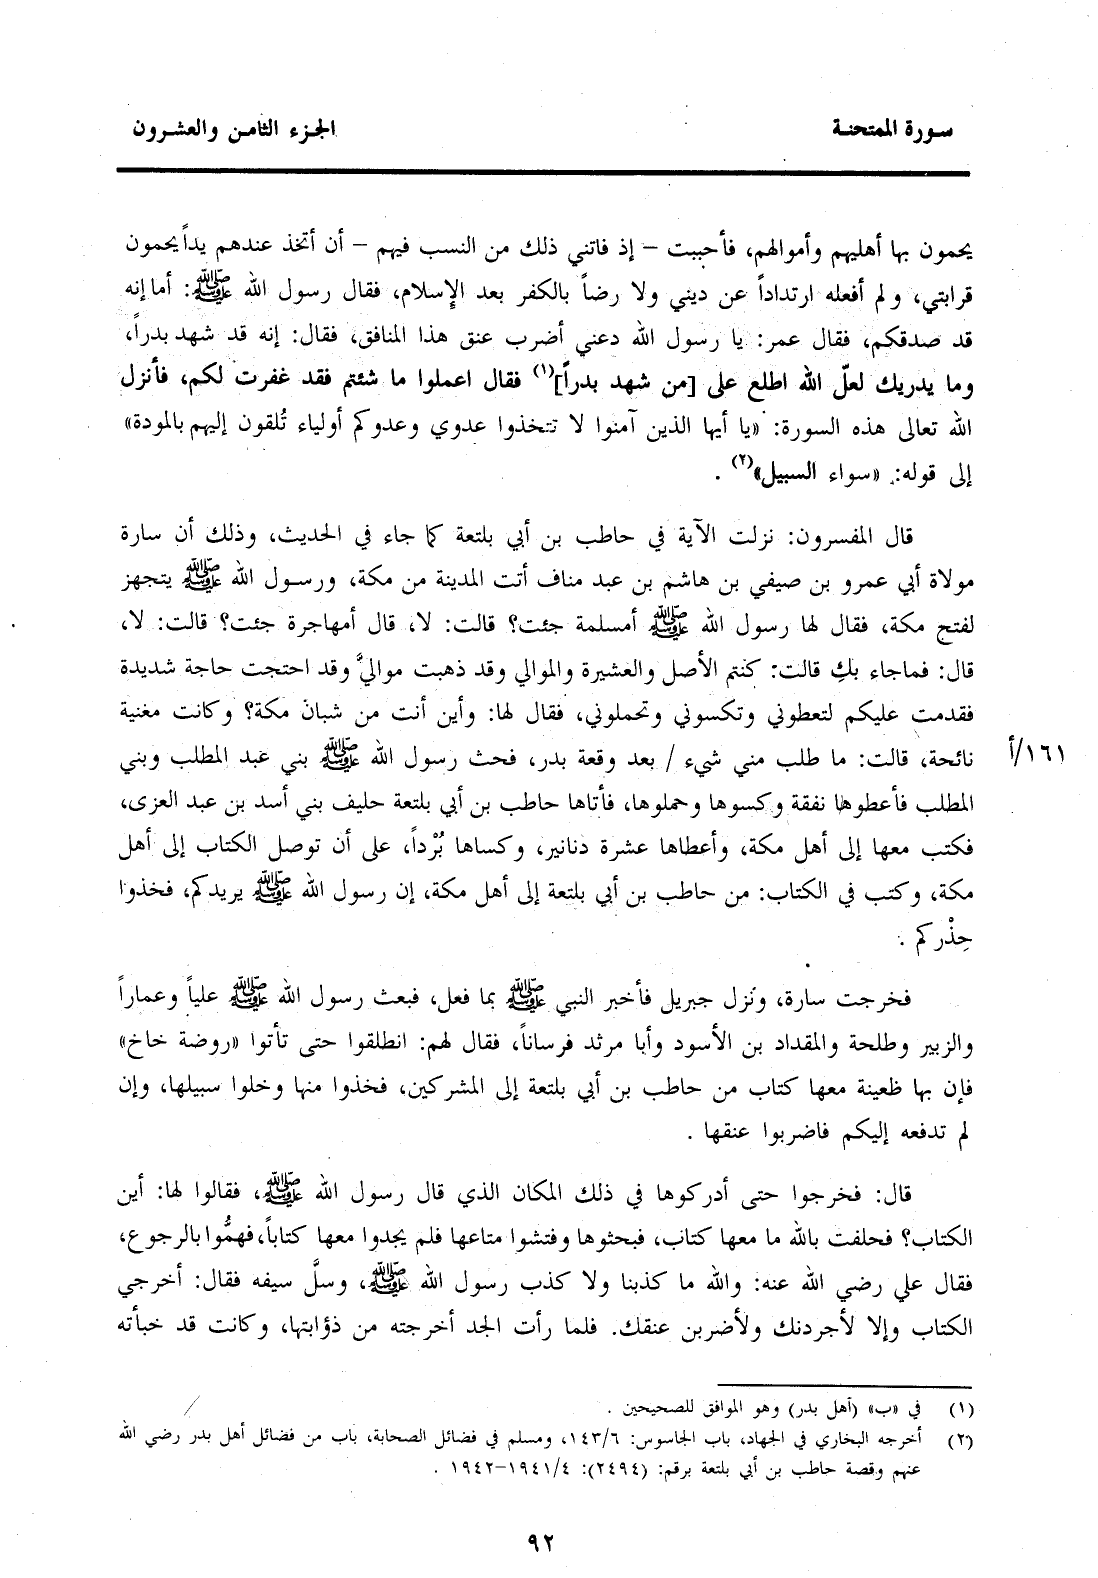 سورة الممتحنة
الجزء الثامن والعشرون
يحمون بها أهليهم وأموالهم، فأحببت – إذ فاتني ذلك من النسب فيهم – أن أتخذ عندهم يداً يحمون
قرابتي، ولم أفعله ارتداداً عن ديني ولا رضاً بالكفر بعد الإسلام، فقال رسول الله ﷺ: أما إنه
قد صدقكم، فقال عمر: يا رسول الله دعني أضرب عنق هذا المنافق، فقال: إنه قد شهد بدراً،
وما يدريك لعلّ الله اطلع على [من شهد بدراً](١) فقال اعملوا ما شئتم فقد غفرت لكم، فأنزل
الله تعالى هذه السورة: «يا أيها الذين آمنوا لا تتخذوا عدوي وعدوكم أولياء تُلقون إليهم بالمودة»
إلى قوله: «سواء السبيل»(٢) .
قال المفسرون: نزلت الآية في حاطب بن أبي بلتعة كما جاء في الحديث، وذلك أن سارة
مولاة أبي عمرو بن صيفي بن هاشم بن عبد مناف أتت المدينة من مكة، ورسول الله ﷺ يتجهز
لفتح مكة، فقال لها رسول الله ﷺ أمسلمة جئت؟ قالت: لا، قال أمهاجرة جئت؟ قالت: لا،
قال: فماجاء بكِ قالت: كنتم الأصل والعشيرة والموالي وقد ذهبت مواليَّ وقد احتجت حاجة شديدة
فقدمت عليكم لتعطوني وتكسوني وتحملوني، فقال لها: وأين أنت من شبان مكة؟ وكانت مغنية
نائحة، قالت: ما طلب مني شيء / بعد وقعة بدر، فحث رسول الله ﷺ بني عبد المطلب وبني
١٦١/أ
المطلب فأعطوها نفقة وكسوها وحملوها، فأتاها حاطب بن أبي بلتعة حليف بني أسد بن عبد العزى،
فكتب معها إلى أهل مكة، وأعطاها عشرة دنانير، وكساها بُرْداً، على أن توصل الكتاب إلى أهل
مكة، وكتب في الكتاب: من حاطب بن أبي بلتعة إلى أهل مكة، إن رسول الله ﷺ يريدكم، فخذوا
حِذْركم .
فخرجت سارة، ونزل جبريل فأخبر النبي ﷺ بما فعل، فبعث رسول الله ﷺ علياً وعماراً
والزبير وطلحة والمقداد بن الأسود وأبا مرثد فرساناً، فقال لهم: انطلقوا حتى تأتوا «روضة خاخ»
فإن بها ظعينة معها كتاب من حاطب بن أبي بلتعة إلى المشركين، فخذوا منها وخلوا سبيلها، وإن
لم تدفعه إليكم فاضربوا عنقها .
قال: فخرجوا حتى أدركوها في ذلك المكان الذي قال رسول الله ﷺ، فقالوا لها: أين
الكتاب؟ فحلفت بالله ما معها كتاب، فبحثوها وفتشوا متاعها فلم يجدوا معها كتاباً، فهمُّوا بالرجوع،
فقال علي رضي الله عنه: والله ما كذبنا ولا كذب رسول الله ﷺ، وسلَّ سيفه فقال: أخرجي
الكتاب وإلا لأجردنك ولأضربن عنقك. فلما رأت الجد أخرجته من ذؤابتها، وكانت قد خبأته
(١) في «ب» (أهل بدر) وهو الموافق للصحيحين .
(٢) أخرجه البخاري في الجهاد، باب الجاسوس: ١٤٣/٦، ومسلم في فضائل الصحابة، باب من فضائل أهل بدر رضي الله
عنهم وقصة حاطب بن أبي بلتعة برقم: (٢٤٩٤): ١٩٤١/٤–١٩٤٢ .
٩٢